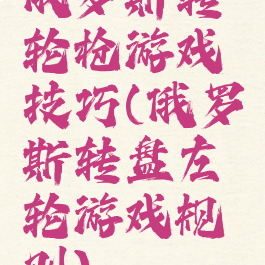 俄罗斯转
轮枪游戏
技巧(俄罗
斯转盘左
轮游戏规
则)